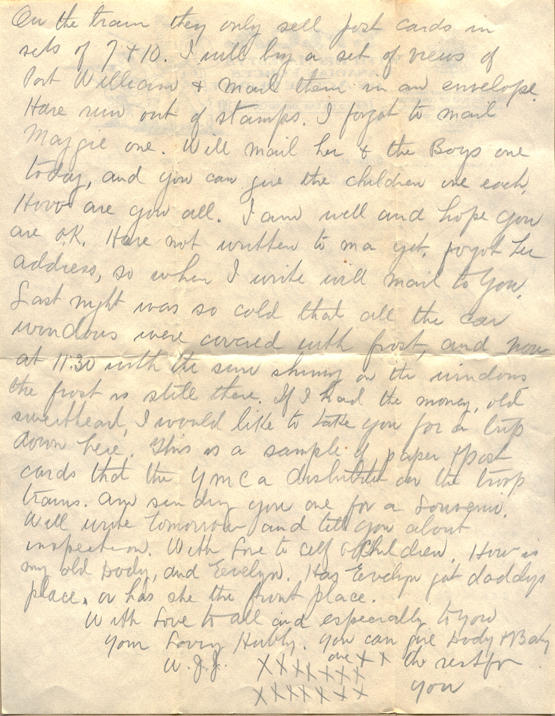 On the train they only sell post cards in
sets of 7 & 10. I will buy a set of views of
Port William & mail them in an envelope.
Have run out of stamps. I forgot to mail
Maggie one. Will mail her & the Boys one
today, and you can give the children one each.
How are you all. I am well and hope you
are O.K. Have not written to ma yet, forgot her
address, so when I write will mail to you.
Last night was so cold that all the car
windows were covered with frost, and now
at 11:30 with the sun shining on the windows
the frost is still there. If I had the money, old
sweetheart, I would like to take you for a trip
down here. This is a sample of paper & post
cards that the YMCA distribute on the troop
trains. Am sending you one for a Souvenir.
Will write tomorrow and tell you about
inspection. With Love to all of children, How is
my old body, and Evelyn. Has Evelyn got daddys
place, or has she the front place.
With Love to all and especially to you
Your Loving Hubby. You can give body & Baby
W.J.J. XXXXXXX one XX the rest for
XXXXXXX you